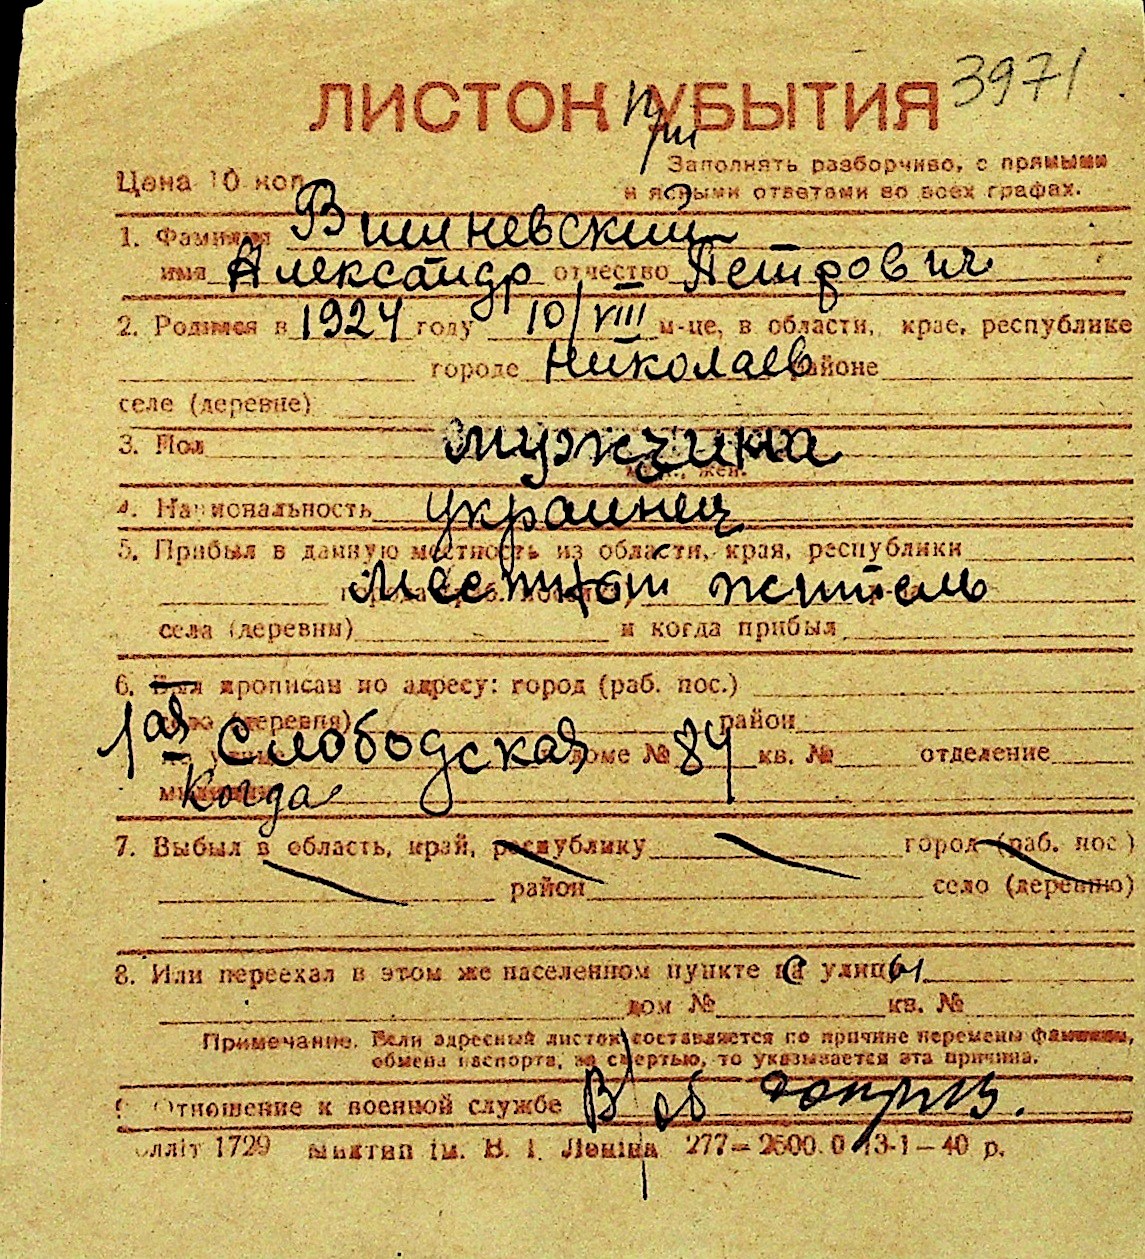 ЛИСТОК УБЫТИЯ
3971
При
Цена 10 коп.
Заполнять разборчиво, с прямыми
и ясными ответами во всех графах.
1. Фамилия Вишневский
имя Александр отчество Петрович
2. Родился в 1924 году 10/VIII м-це, в области, крае, республике
городе Николаев районе
селе (деревне)
3. Пол мужчина
муж., жен.
4. Национальность украинец
5. Прибыл в данную местность из области, края, республики
местный житель
села (деревни) и когда прибыл
6. Был прописан по адресу: город (раб. пос.)
село (деревня) район
1ая Слободская доме № 84 кв. № отделение
милиции Когда
7. Выбыл в область, край, республику город (раб. пос.)
район село (деревню)
8. Или переехал в этом же населенном пункте с улицы
дом № кв. №
Примечание. Если адресный листок составляется по причине перемены фамилии,
обмена паспорта, за смертью, то указывается эта причина.
9. Отношение к военной службе В/об доприз.
1729 им. В. І. Леніна 277—2600. 0 13-1—40 р.